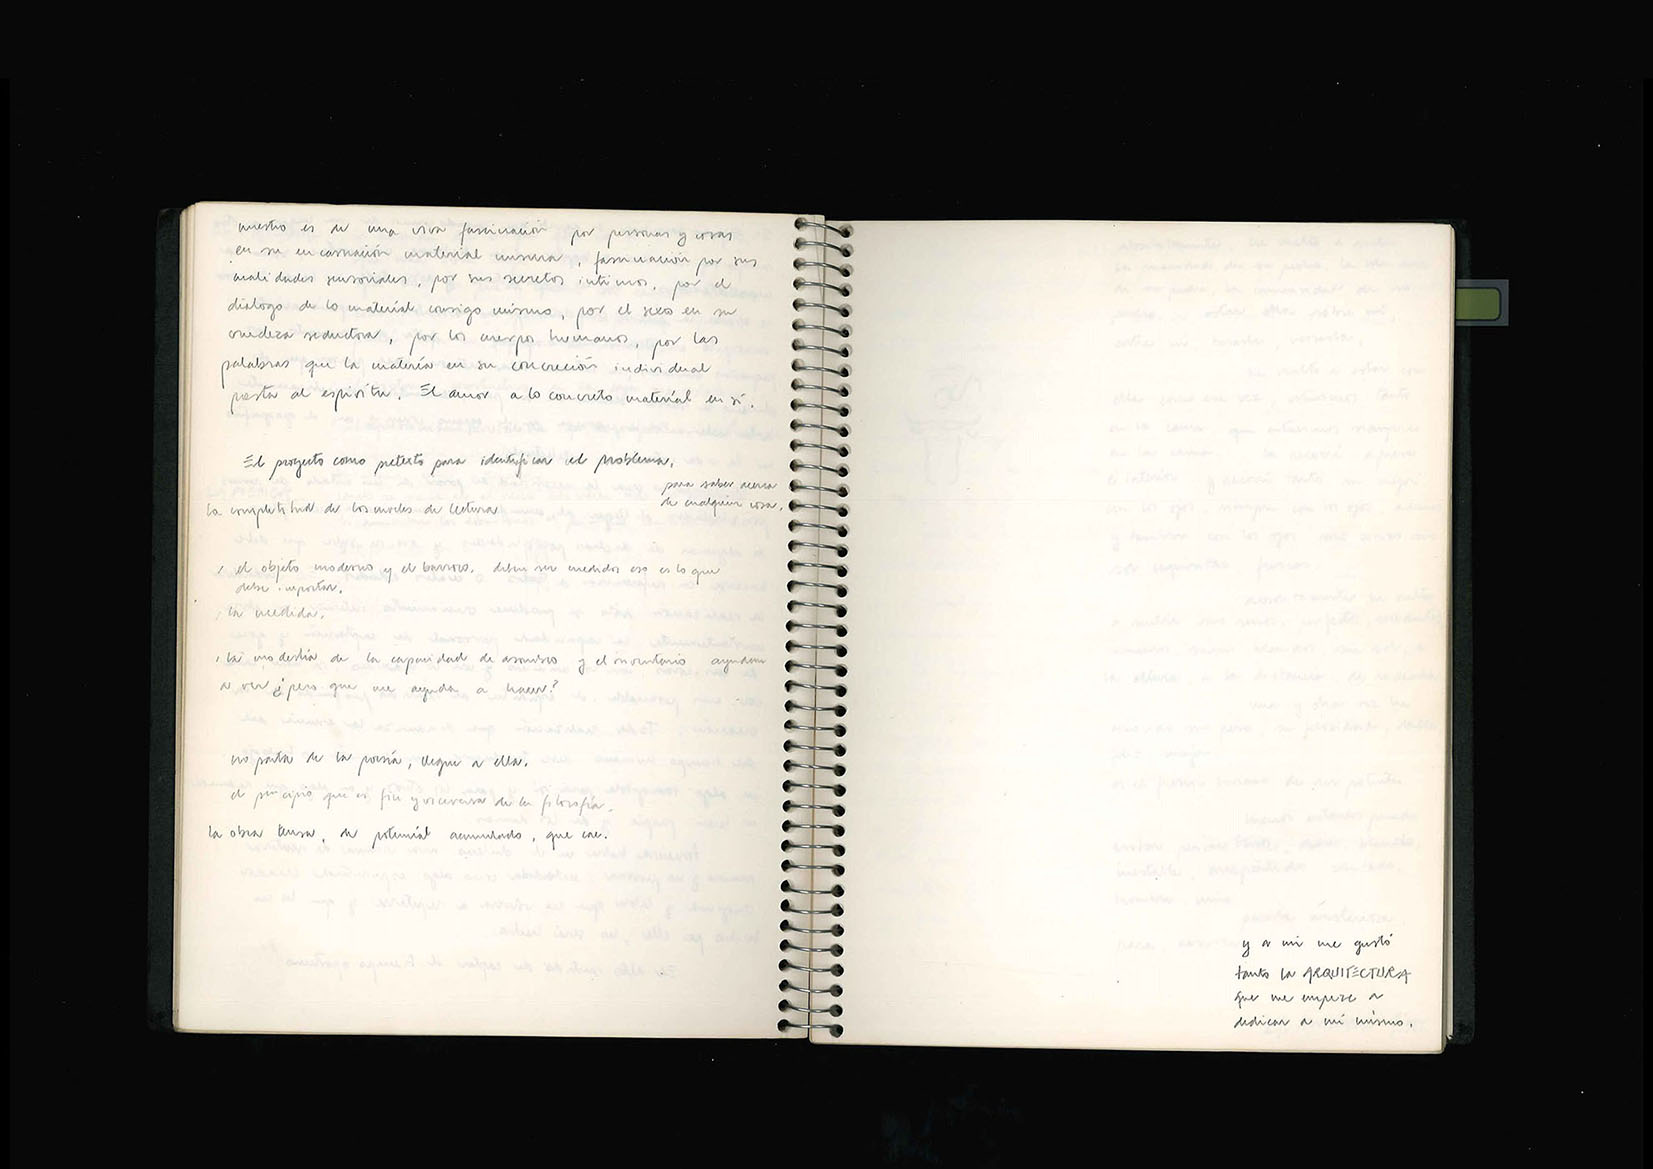 nuestro es de una viva fascinación por personas y cosas
en su encarnación material misma, fascinación por sus
cualidades sensoriales, por sus secretos intimos, por el
dialogo de lo material consigo mismo, por el sexo en su
crudeza seductora, por los cuerpos humanos, por las
palabras que la materia en su concreción individual
gasta al espiritu. El amor a lo concreto material en sí.
El proyecto como pretexto para identificar el problema.
para saber acerca
de cualquier cosa.
la completitud de los niveles de lectura
el objeto moderno y el barroco. deben ser medidos eso es lo que
debe importar.
la medida.
la modestia de la capacidad de asombro y el inventario ayudan
a ver ¿pero que me ayuda a hacer?
no parta de la poesía, llegue a ella.
el principio que es fin y viceversa de la filosofía.
la obra tensa, de potencial acumulado, que cae.
y a mi me gustó
tanto la ARQUITECTURA
que me empece a
dedicar a mí mismo.